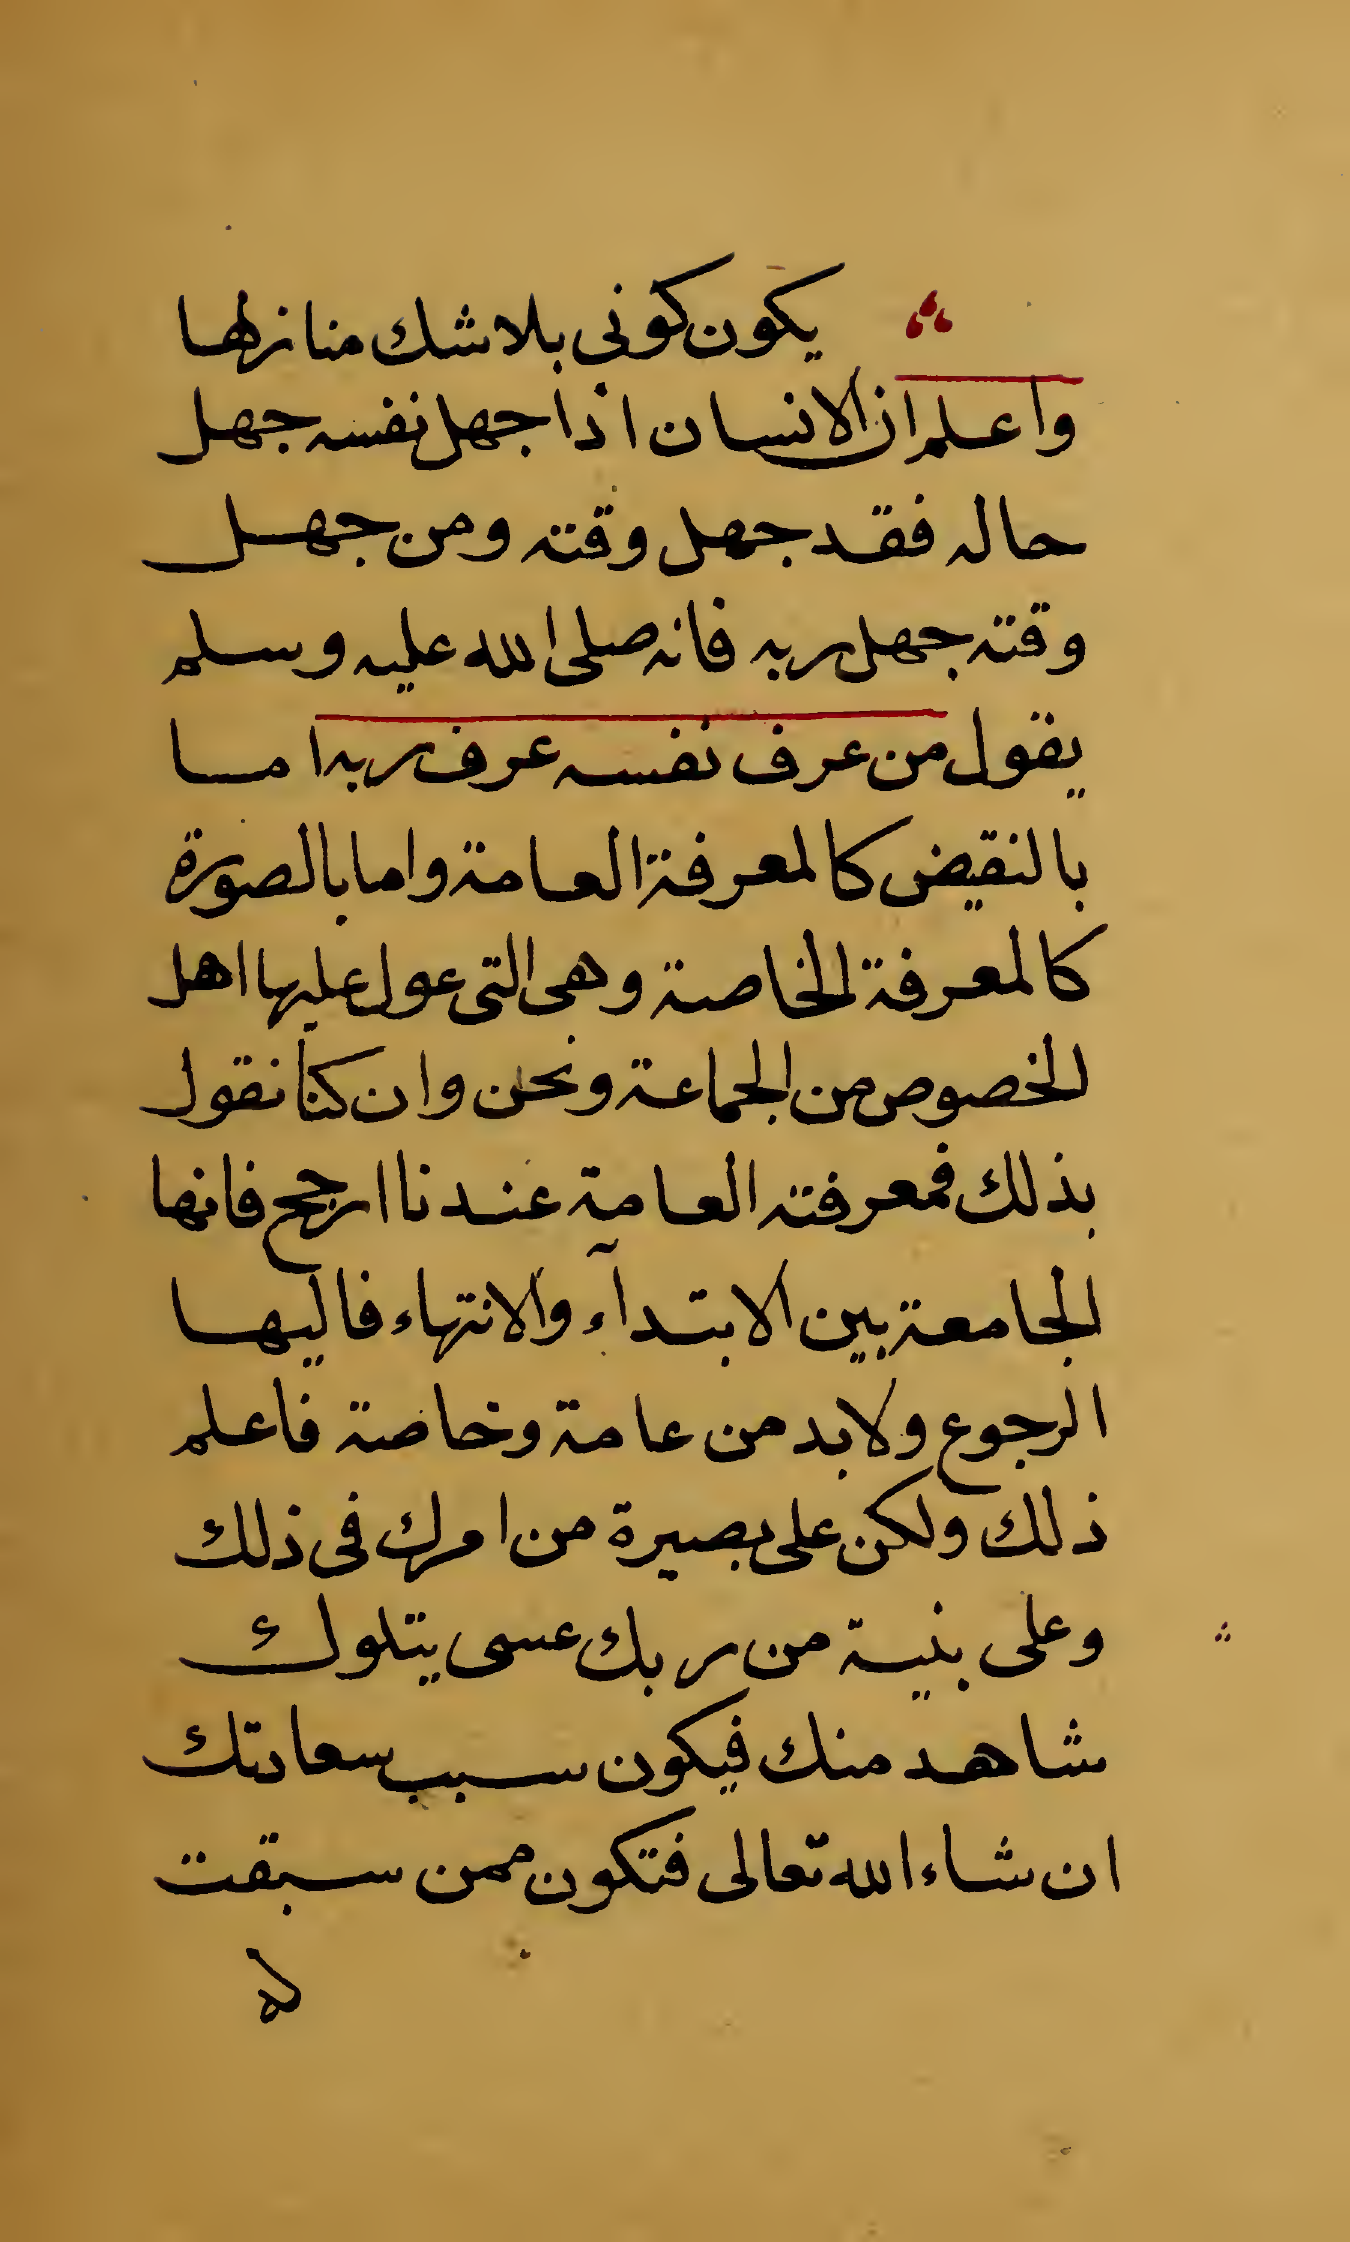 يكون كونى بلا شك منازلها
واعلم ان الانسان اذا جهل نفسه جهل
حاله فقد جهل وقته ومن جهل
وقته جهل ربه فانه صلى الله عليه وسلم
يقول من عرف نفسه عرف ربه اما
بالنقيض كالمعرفة العامة واما بالصورة
كالمعرفة الخاصة وهى التى عول عليها اهل
الخصوص من الجماعة ونحن وان كنا نقول
بذلك فمعرفته العامة عندنا ارجح فانها
الجامعة بين الابتدآء والانتهاء فاليها
الرجوع ولابد من عامة وخاصة فاعلم
ذلك ولكن على بصيرة من امرك فى ذلك
وعلى بنية من ربك عسى يتلوك
شاهد منك فيكون سبب سعادتك
ان شاء الله تعالى فتكون ممن سبقت
له